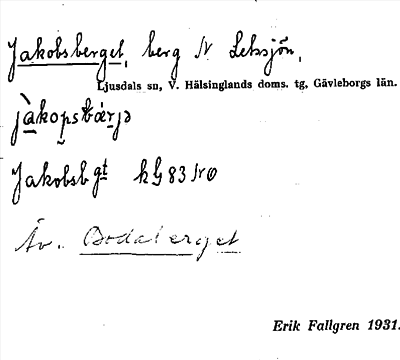 Jakobsberget, berg N Leksjön,
Ljusdals sn, V. Hälsinglands doms. tg, Gävleborgs län.
jàkopsbárjə
Jakobsbgt hG 83 NO
Äv. Bodaberget
Erik Fallgren 1931.